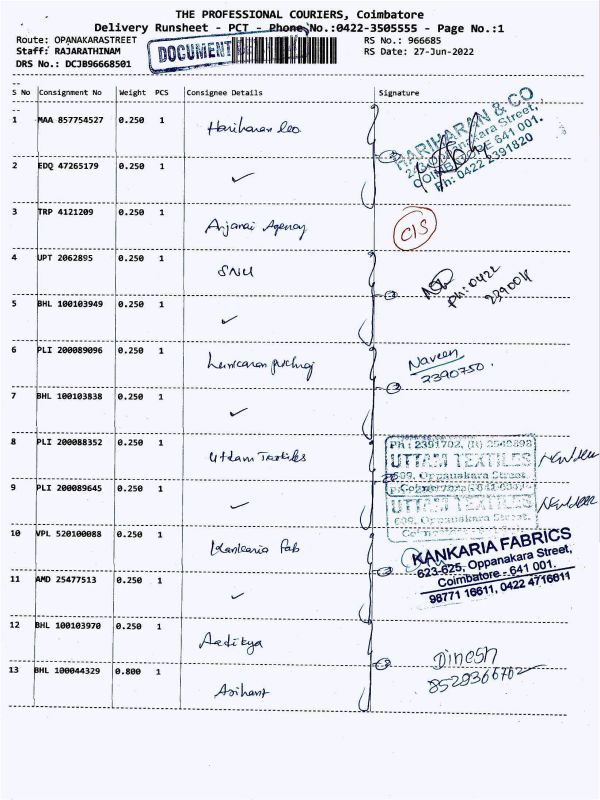 THE PROFESSIONAL COURIERS, Coimbatore
Delivery Runsheet - PCT - Phone No.:0422-3505555 - Page No.:1
Route: OPANAKARASTREET
RS No.: 966685
Staff: RAJARATHINAM
DOCUMENT
RS Date: 27-Jun-2022
DRS No.: DCJB96668501
S No Consignment No Weight PCS Consignee Details Signature
1 MAA 857754527 0.250 1 Hariharan
HARIHARAN & CO
COIMBATORE 641 001.
Ph: 0422 2391820
2 EDQ 47265179 0.250 1 ✓
3 TRP 4121209 0.250 1 Anjanai Agency
4 UPT 2062895 0.250 1 SNU
Ph: 0422
5 BHL 100103949 0.250 1 ✓
6 PLI 200089096 0.250 1
Naveen
2390750.
7 BHL 100103838 0.250 1 ✓
8 PLI 200088352 0.250 1 Uttam Textiles
UTTAM TEXTILES
609, Oppanakara Street,
9 PLI 200089645 0.250 1 ✓
UTTAM TEXTILES
609, Oppanakara Street,
10 VPL 520100088 0.250 1 Kankaria Fab
KANKARIA FABRICS
623-625, Oppanakara Street,
Coimbatore - 641 001.
98771 16611, 0422 4716611
11 AMD 25477513 0.250 1 ✓
12 BHL 100103970 0.250 1 Aaditya
Dinesh
13 BHL 100044329 0.800 1 Arihant